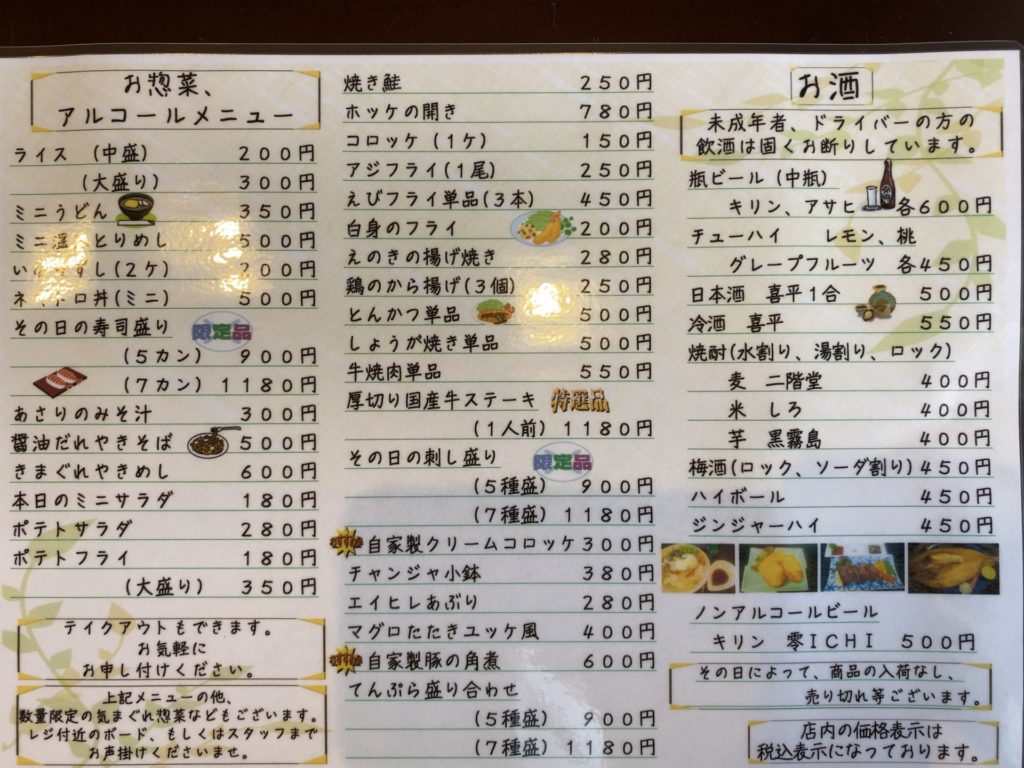 お惣菜、
アルコールメニュー
ライス (中盛) 200円
(大盛り) 300円
ミニうどん 350円
ミニ とりめし 500円
い すし(2ケ) 200円
ネ トロ丼(ミニ) 500円
その日の寿司盛り 限定品
(5カン) 900円
(7カン) 1180円
あさりのみそ汁 300円
醤油だれやきそば 500円
きまぐれやきめし 600円
本日のミニサラダ 180円
ポテトサラダ 280円
ポテトフライ 180円
(大盛り) 350円
テイクアウトもできます。
お気軽に
お申し付けください。
上記メニューの他、
数量限定の気まぐれ惣菜などもございます。
レジ付近のボード、もしくはスタッフまで
お声掛けくださいませ。
焼き鮭 250円
ホッケの開き 780円
コロッケ (1ケ) 150円
アジフライ(1尾) 250円
えびフライ単品(3本) 450円
白身のフライ 200円
えのきの揚げ焼き 280円
鶏のから揚げ(3個) 250円
とんかつ単品 500円
しょうが焼き単品 500円
牛焼肉単品 550円
厚切り国産牛ステーキ 特選品
(1人前) 1180円
その日の刺し盛り 限定品
(5種盛) 900円
(7種盛) 1180円
自家製クリームコロッケ 300円
チャンジャ小鉢 380円
エイヒレあぶり 280円
マグロたたきユッケ風 400円
自家製豚の角煮 600円
てんぷら盛り合わせ
(5種盛) 900円
(7種盛) 1180円
お酒
未成年者、ドライバーの方の
飲酒は固くお断りしています。
瓶ビール (中瓶)
キリン、アサヒ 各600円
チューハイ レモン、桃
グレープフルーツ 各450円
日本酒 喜平1合 500円
冷酒 喜平 550円
焼酎(水割り、湯割り、ロック)
麦 二階堂 400円
米 しろ 400円
芋 黒霧島 400円
梅酒(ロック、ソーダ割り) 450円
ハイボール 450円
ジンジャーハイ 450円
ノンアルコールビール
キリン 零ICHI 500円
その日によって、商品の入荷なし、
売り切れ等ございます。
店内の価格表示は
税込表示になっております。